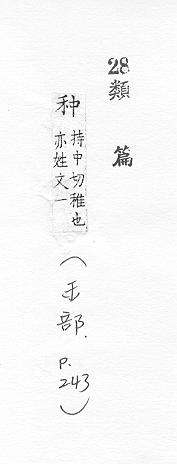 28
類
篇
种
持中切稚也
亦姓文一
(禾部. P. 243)